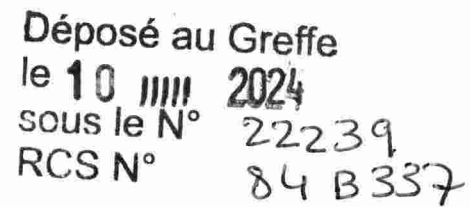 Déposé au Greffe
le 10 2024
sous le N° 22239
RCS N° 84 B 337